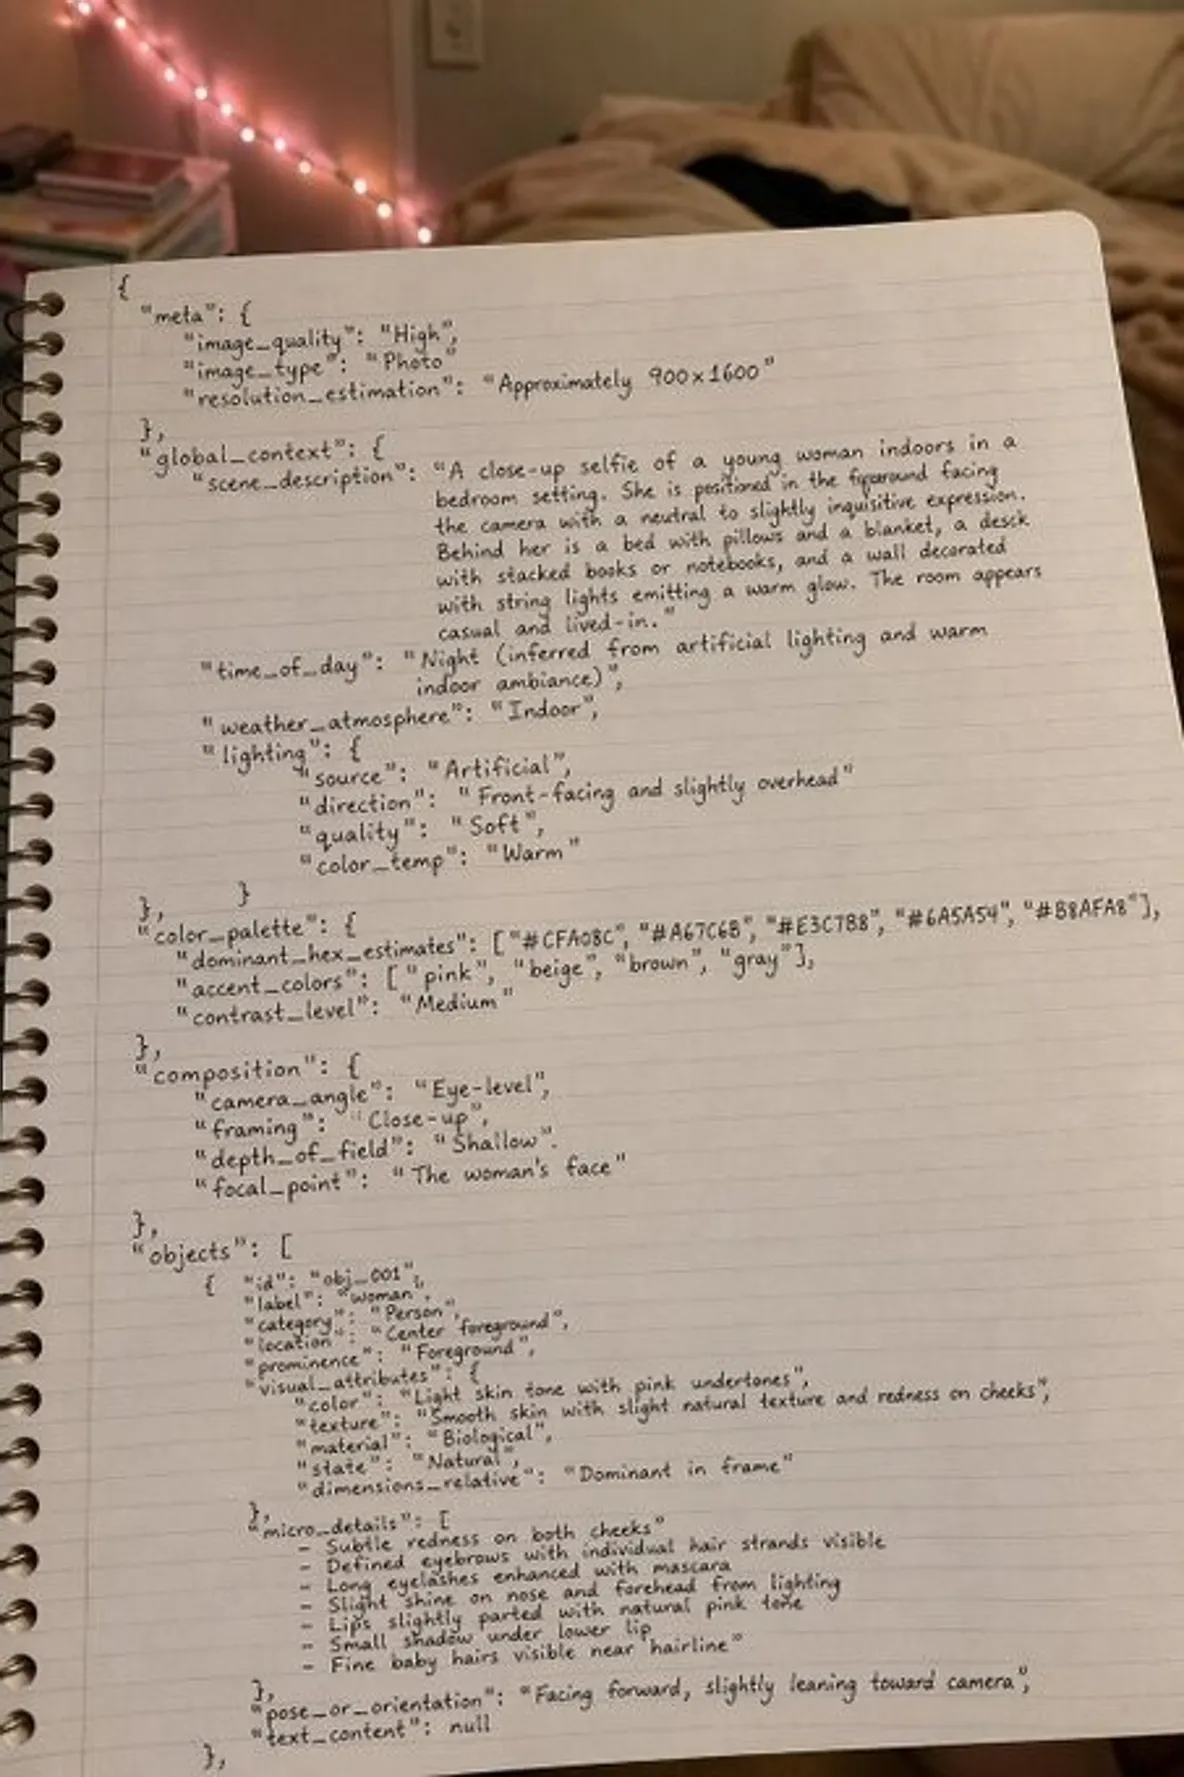 {
"meta": {
"image_quality": "High",
"image_type": "Photo"
"resolution_estimation": "Approximately 900x1600"
},
"global_context": {
"scene_description": "A close-up selfie of a young woman indoors in a
bedroom setting. She is positioned in the facing
the camera with a neutral to slightly inquisitive expression.
Behind her is a bed with pillows and a blanket, a desk
with stacked books or notebooks, and a wall decorated
with string lights emitting a warm glow. The room appears
casual and lived-in."
"time_of_day": "Night (inferred from artificial lighting and warm
indoor ambiance)",
"weather_atmosphere": "Indoor",
"lighting": {
"source": "Artificial",
"direction": "Front-facing and slightly overhead"
"quality": "Soft",
"color_temp": "Warm"
}
},
"color_palette": {
"dominant_hex_estimates": ["#CFA08C", "#A67C6B", "#E3C7B8", "#6A5A54", "#B8AFA8"],
"accent_colors": ["pink", "beige", "brown", "gray"],
"contrast_level": "Medium"
},
"composition": {
"camera_angle": "Eye-level",
"framing": "Close-up",
"depth_of_field": "Shallow".
"focal_point": "The woman's face"
},
"objects": [
{ "id": "obj_001",
"label": "woman",
"category": "Person",
"location": "Center foreground",
"prominence": "Foreground",
"visual_attributes": {
"color": "Light skin tone with pink undertones",
"texture": "Smooth skin with slight natural texture and redness on cheeks",
"material": "Biological",
"state": "Natural",
"dimensions_relative": "Dominant in frame"
},
"micro_details": [
- Subtle redness on both cheeks"
- Defined eyebrows with individual hair strands visible
- Long eyelashes enhanced with mascara
- Slight shine on nose and forehead from lighting
- Lips slightly parted with natural pink tone
- Small shadow under lower lip
- Fine baby hairs visible near hairline"
],
"pose_or_orientation": "Facing forward, slightly leaning toward camera",
"text_content": null
},